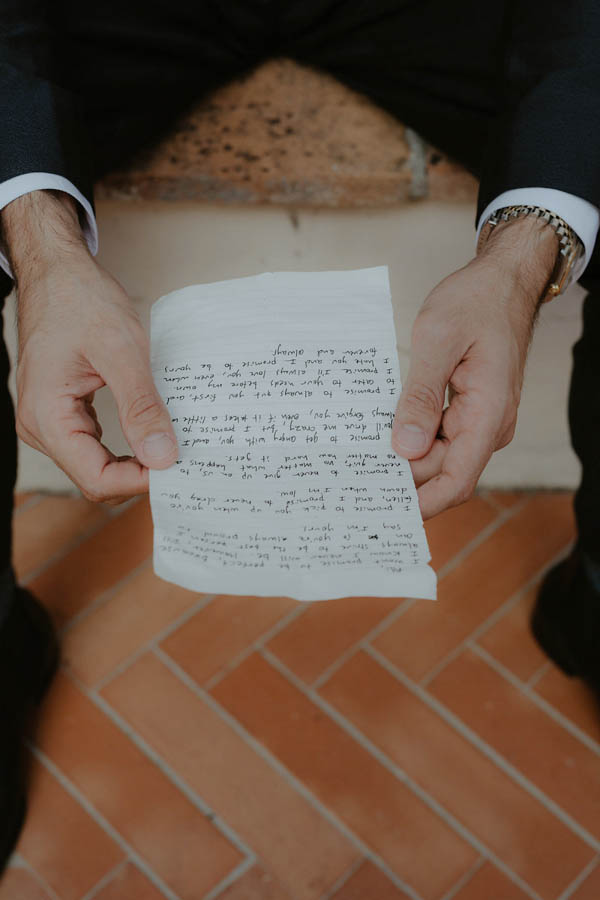 I won't promise to be perfect because
I know I never will be. However, I'll
always strive to be the best person I
can so you're always proud to
say I'm yours.
I promise to pick you up when you've
fallen, and I promise to never drag you
down when I'm low.
I promise to never give up on us, to
never quit, no matter what happens &
no matter how hard it gets.
I promise to get angry with you, and
you'll drive me crazy, but I promise to
always forgive you, even if it takes a little
I promise to always put you first, and
to cater to your needs before my own
I promise I'll always love you, even when
I hate you and I promise to be yours
forever and always.